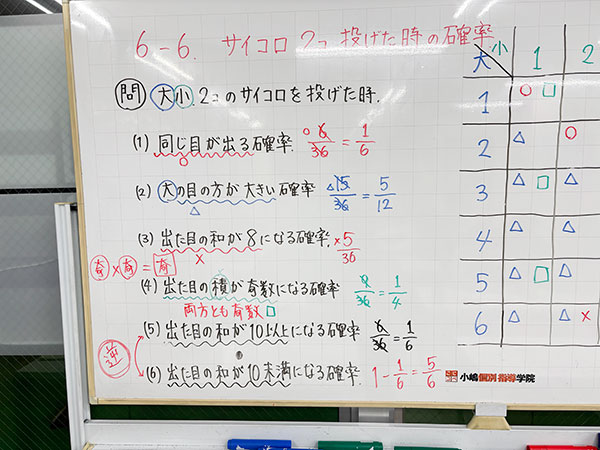 6-6. サイコロ2コ投げた時の確率
問 大小2コのサイコロを投げた時.
(1) 同じ目が出る確率. ○6/36 = 1/6
(2) 大の目の方が大きい確率 △15/36 = 5/12
△
(3) 出た目の和が8になる確率. ×5/36
×
奇×奇=奇
(4) 出た目の積が奇数になる確率 9/36 = 1/4
両方とも奇数□
(5) 出た目の和が10以上になる確率 6/36 = 1/6
逆
(6) 出た目の和が10未満になる確率. 1-1/6 = 5/6
大 小 1 2
1 ○ □
2 △ ○
3 △ □ △
4 △ △
5 △ □ △
6 △ △ ×
小嶋個別指導学院